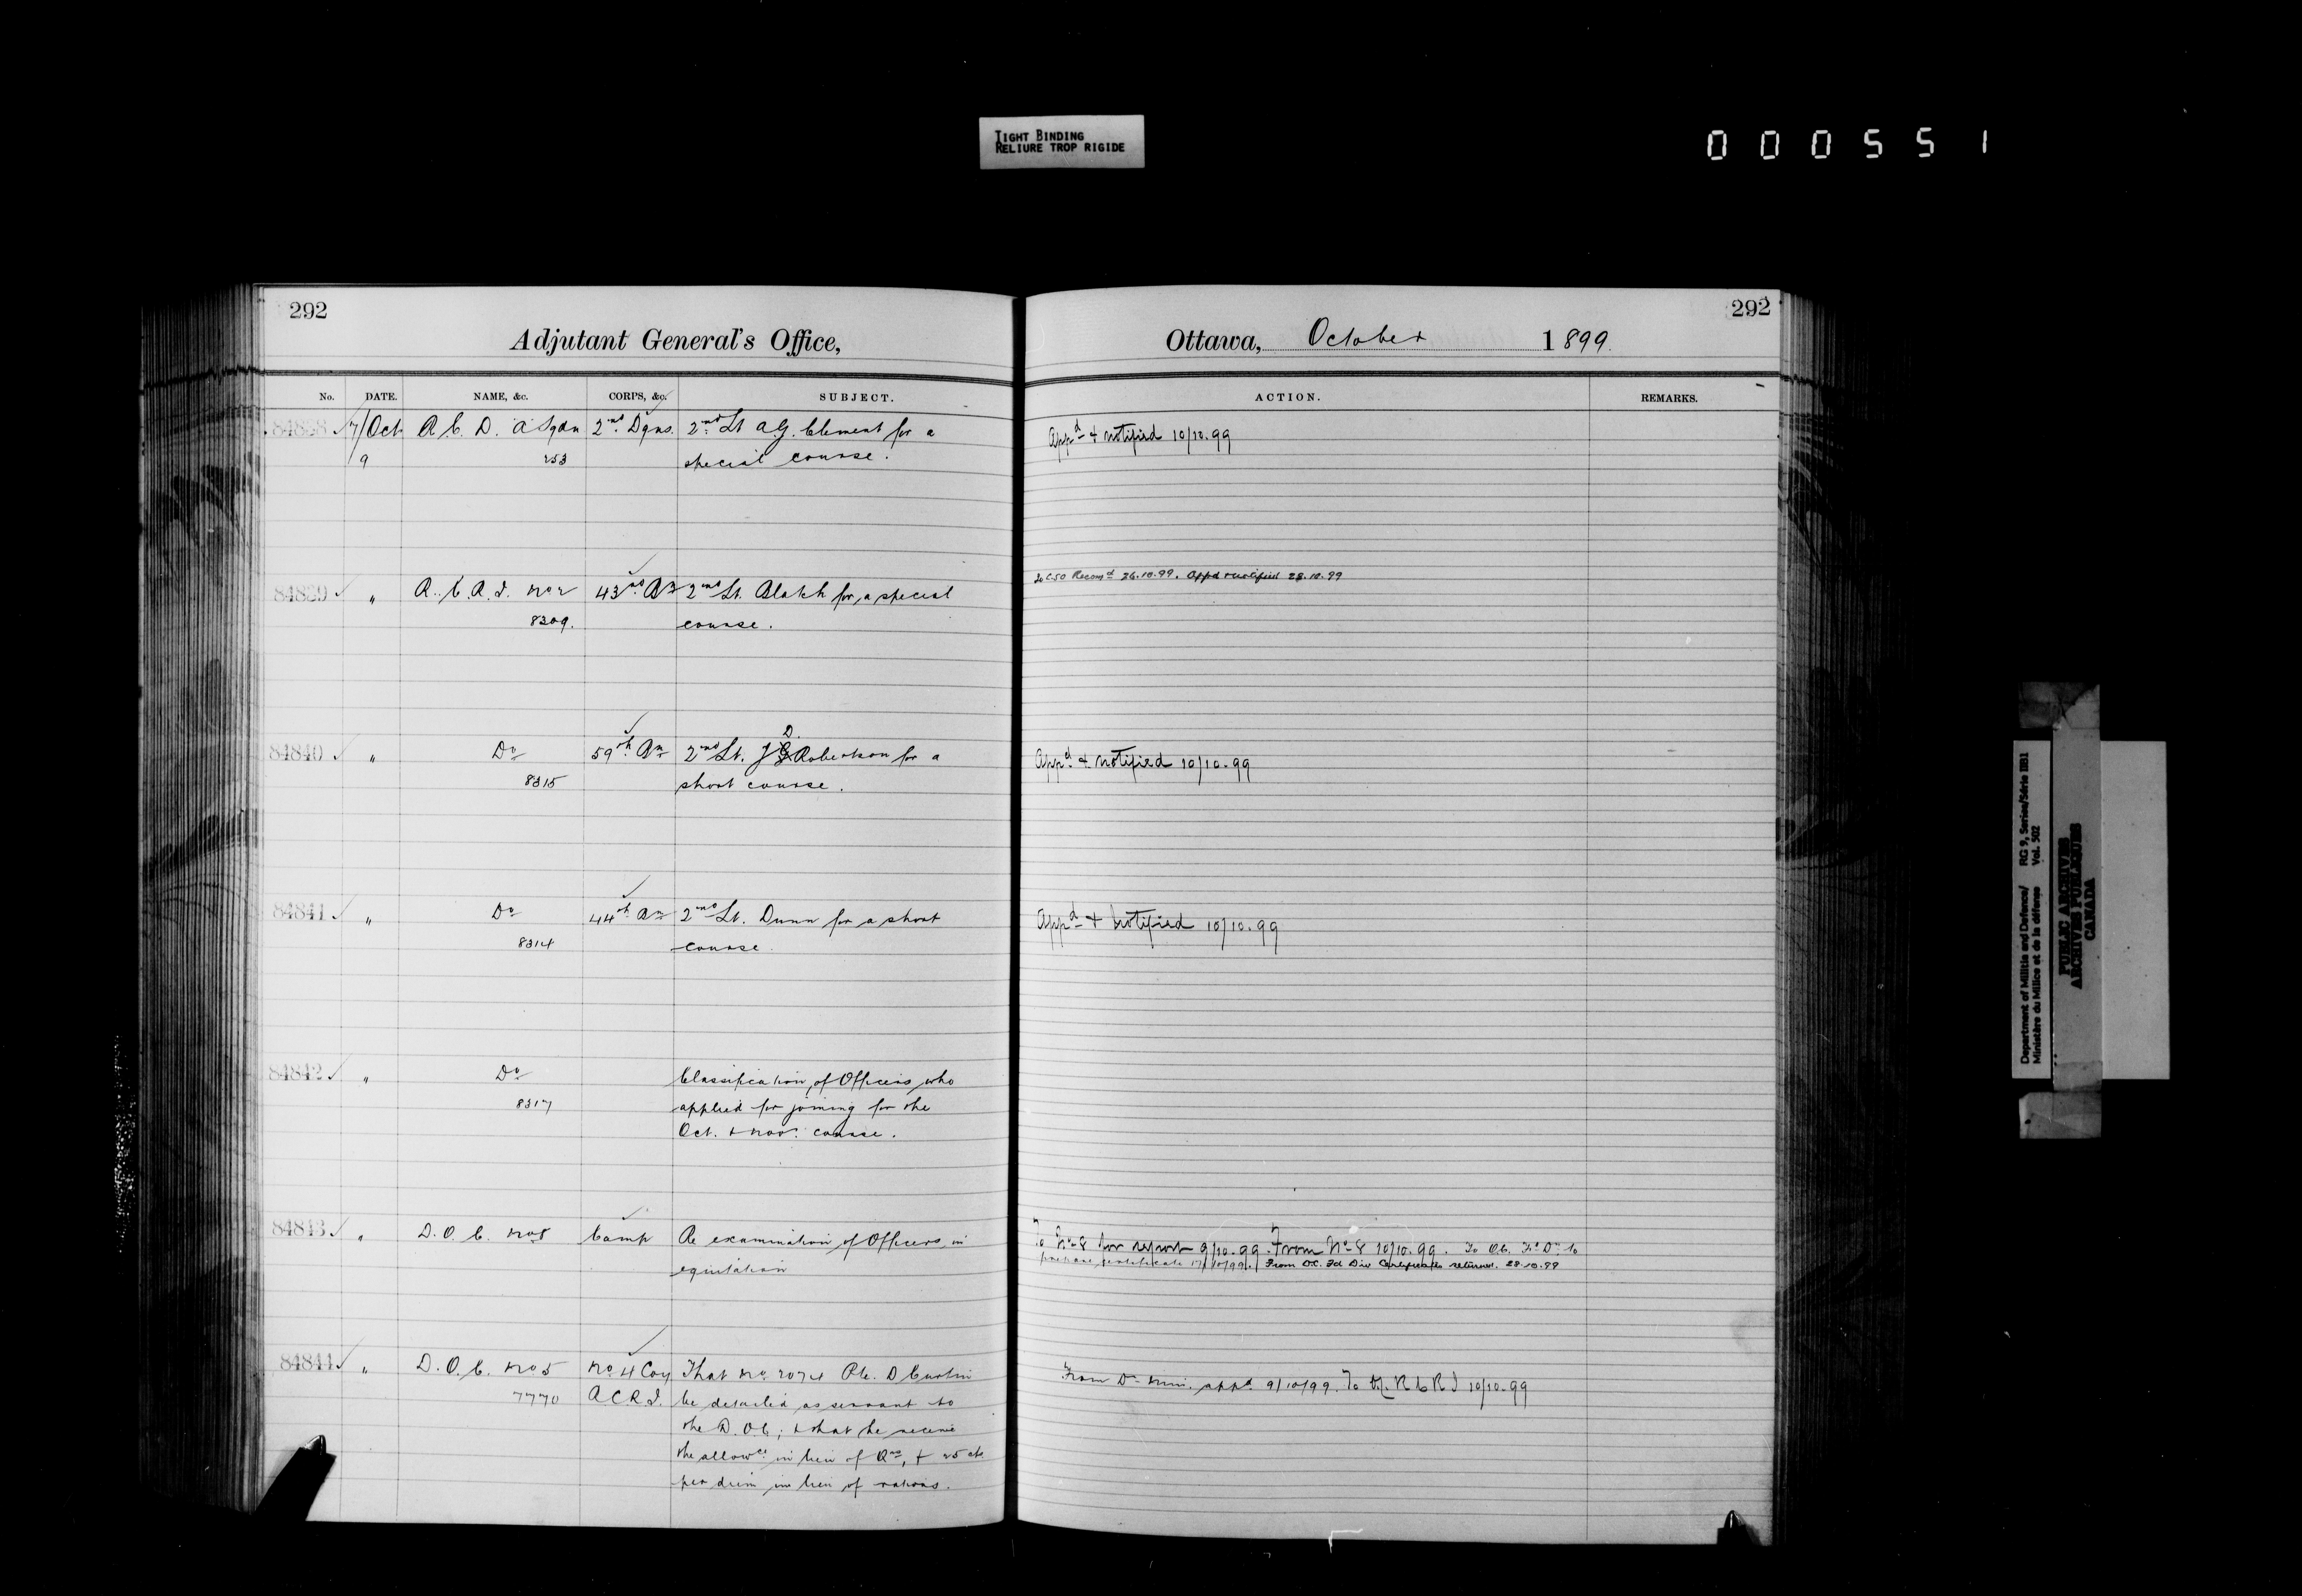 TIGHT BINDING
RELIURE TROP RIGIDE
000551
292
Adjutant General's Office,
No. DATE. NAME, &c. CORPS, &c. SUBJECT.
84838 7/Oct R. C. D. "A" Sqdn 2nd Dgns. 2nd Lt A.G. Clement for a
9 253 special course.
84839 " R. C. R. I. No 2 43rd Bn 2nd Lt. Blatch for a special
8309. course.
84840 " Do 59th Bn 2nd Lt. J D. Robertson for a
8315 short course.
84841 " Do 44th Bn 2nd Lt. Dunn for a short
8314 course.
84842 " Do Classification of Officers who
8317 applied for joining for the
Oct. & Nov. course.
84843 " D. O. C. No 8 Camp Re examination of Officers in
equitation
84844 " D. O. C. No 5 No 4 Coy That No 2074 Pte. D Curtin
7770 R C R I. be detailed as servant to
the D. O C; & that he receive
the allowce in lieu of Qrs, & 25 cts
per diem in lieu of rations.
292
Ottawa, October 1899
ACTION. REMARKS.
Appd & notified 10/10.99
To CSO Recomd 26.10.99. Appd & notified 28.10.99
Appd & notified 10/10.99
Appd & notified 10/10.99
To No 8 for report 9/10.99. From No 8 10/10.99. To OC. Fd Dn to
prepare certificate 17/10/99. From OC. Fd Div Certificates returned. 28.10.99
From Dy Min. appd 9/10/99. To R C R I 10/10.99
Department of Militia and Defence/ RG 9, Series/Série IIB1
Ministère du Milice et de la défense Vol. 502
PUBLIC ARCHIVES
ARCHIVES PUBLIQUES
CANADA